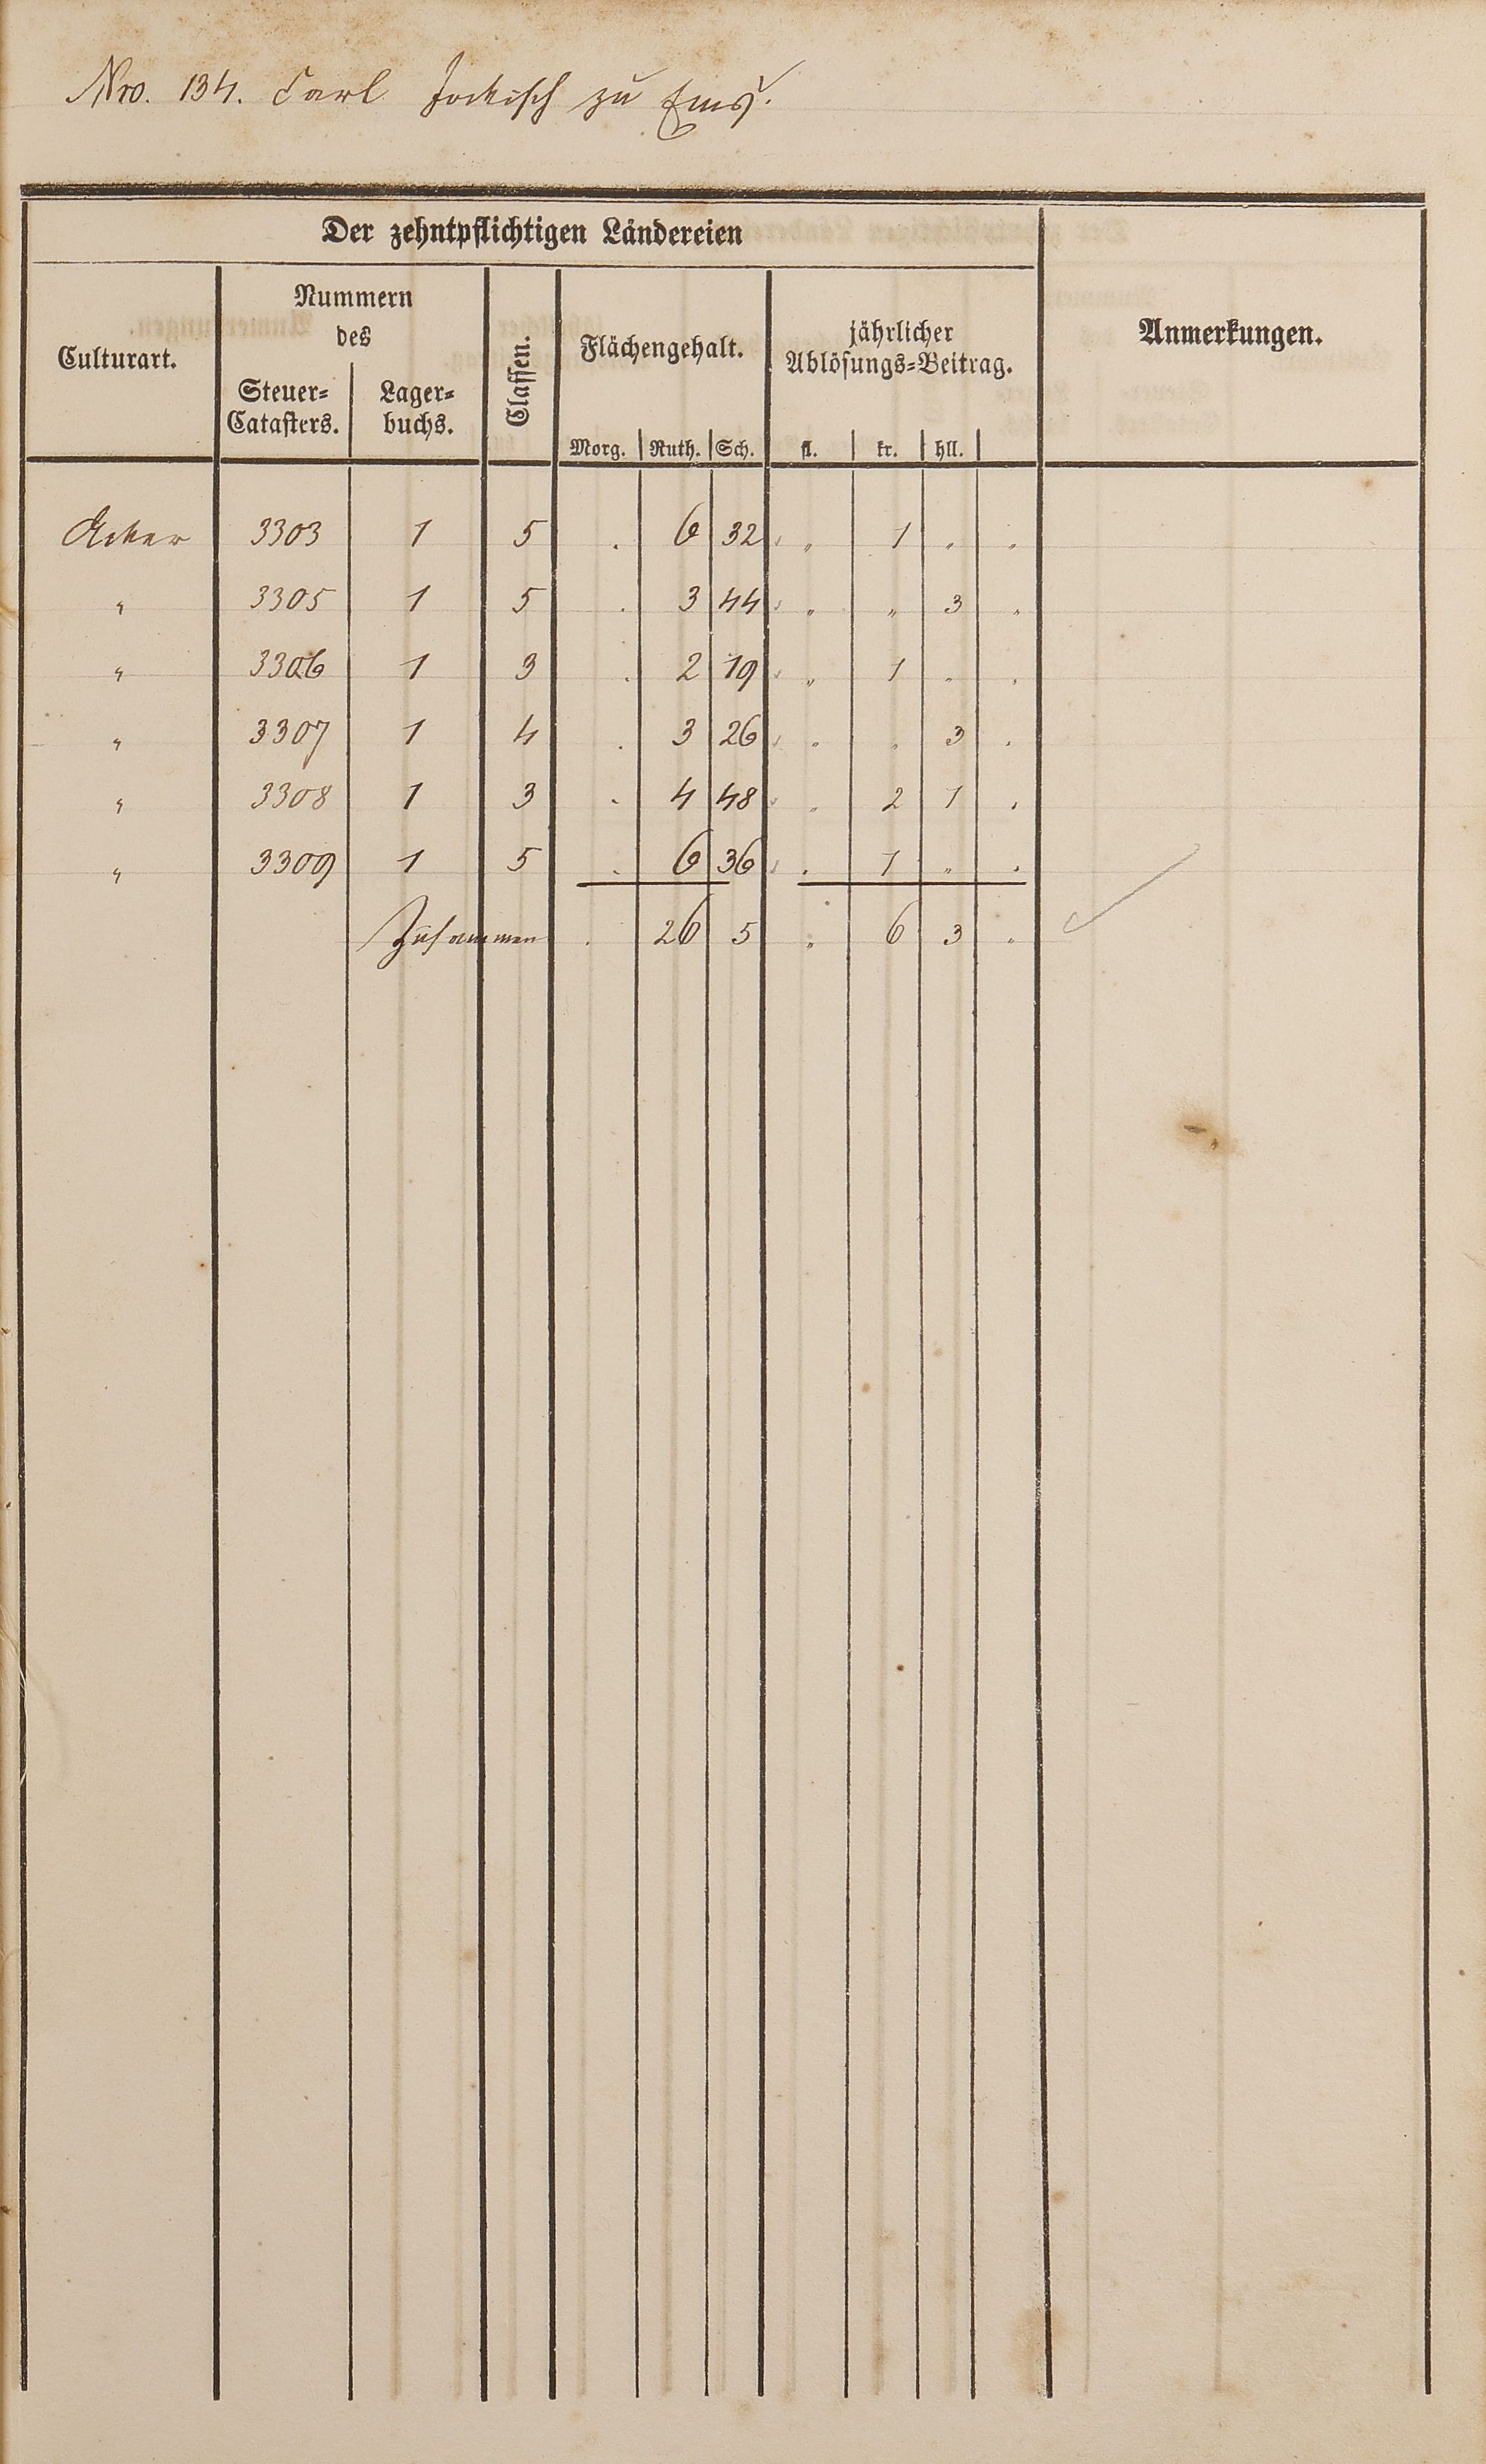 Nro. 134. Carl Jockisch zu Ems.
Der zehntpflichtigen Ländereien
Culturart.
Nummern
des
Steuer=
Catasters.
Lager=
buchs.
Classen.
Flächengehalt.
Morg. Ruth. Sch.
jährlicher
Ablösungs=Beitrag.
fl. kr. hll.
Anmerkungen.
Acker 3303 1 5 . 6 32 „ 1 „ „
„ 3305 1 5 . 3 44 „ „ 3 „
„ 3306 1 3 . 2 19 „ 1 . .
„ 3307 1 4 . 3 26 . . 3 .
„ 3308 1 3 . 4 48 . 2 1 .
„ 3309 1 5 . 6 36 . 1 „ .
Zusammen . 26 5 „ 6 3 „